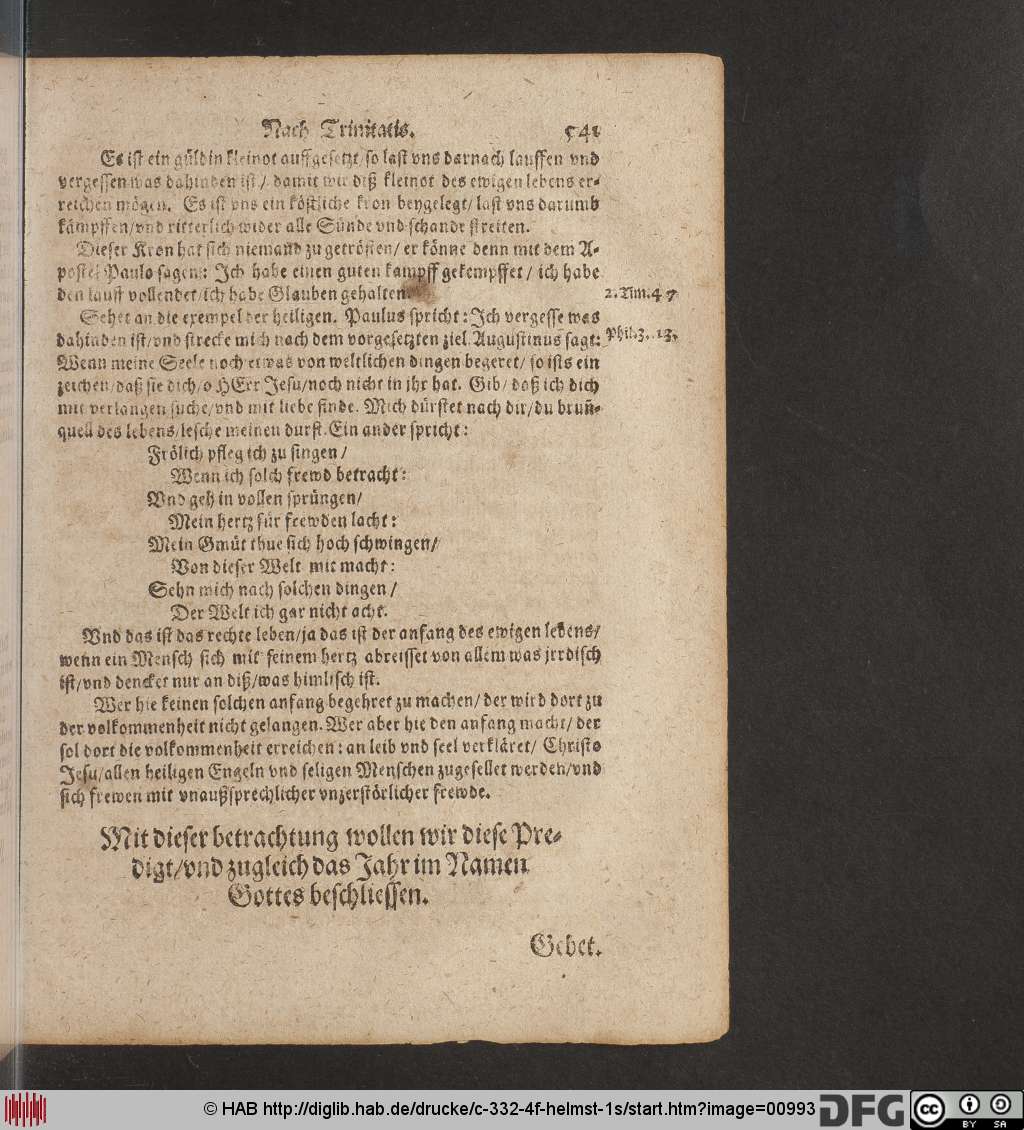 Nach Trinitatis. 541
Es ist ein güldin kleinot auffgesetzt/ so last vns darnach lauffen vnd
vergessen was dahinden ist/ damit wir diß kleinot des ewigen lebens er-
reichen mögen. Es ist vns ein köstliche kron beygelegt/ last vns darumb
kämpffen/ vnd ritterlich wider alle Sünde vnd schande streiten.
Dieser Kron hat sich niemand zu getrösten/ er könne denn mit dem A-
postel Paulo sagen: Ich habe einen guten kampff gekempffet/ ich habe
den lauff vollendet/ ich habe Glauben gehalten.
2. Tim. 4 7
Sehet an die exempel der heiligen. Paulus spricht: Ich vergesse was
dahinden ist/ vnd strecke mich nach dem vorgesetzten ziel. Augustinus sagt:
Phil. 3. 13.
Wenn meine Seele noch etwas von weltlichen dingen begeret/ so ists ein
zeichen/ daß sie dich/ o HErr Jesu/ noch nicht in jhr hat. Gib/ daß ich dich
mit verlangen suche/ vnd mit liebe finde. Mich dürstet nach dir/ du brun̄-
quell des lebens/ lesche meinen durst. Ein ander spricht:
Frölich pfleg ich zu singen/
Wenn ich solch frewd betracht:
Vnd geh in vollen sprüngen/
Mein hertz für frewden lacht:
Mein Gmüt thue sich hoch schwingen/
Von dieser Welt mit macht:
Sehn mich nach solchen dingen/
Der Welt ich gar nicht acht.
Vnd das ist das rechte leben/ ja das ist der anfang des ewigen lebens/
wenn ein Mensch sich mit seinem hertz abreisset von allem was jrrdisch
ist/ vnd dencket nur an diß/ was himlisch ist.
Wer hie keinen solchen anfang begehret zu machen/ der wird dort zu
der volkommenheit nicht gelangen. Wer aber hie den anfang macht/ der
sol dort die volkommenheit erreichen: an leib vnd seel verkläret/ Christo
Jesu/ allen heiligen Engeln vnd seligen Menschen zugesellet werden/ vnd
sich frewen mit vnaußsprechlicher vnzerstörlicher frewde.
Mit dieser betrachtung wollen wir diese Pre-
digt/ vnd zugleich das Jahr im Namen
Gottes beschliessen.
Gebet.
© HAB http://diglib.hab.de/drucke/c-332-4f-helmst-1s/start.htm?image=00993
DFG
cc BY SA